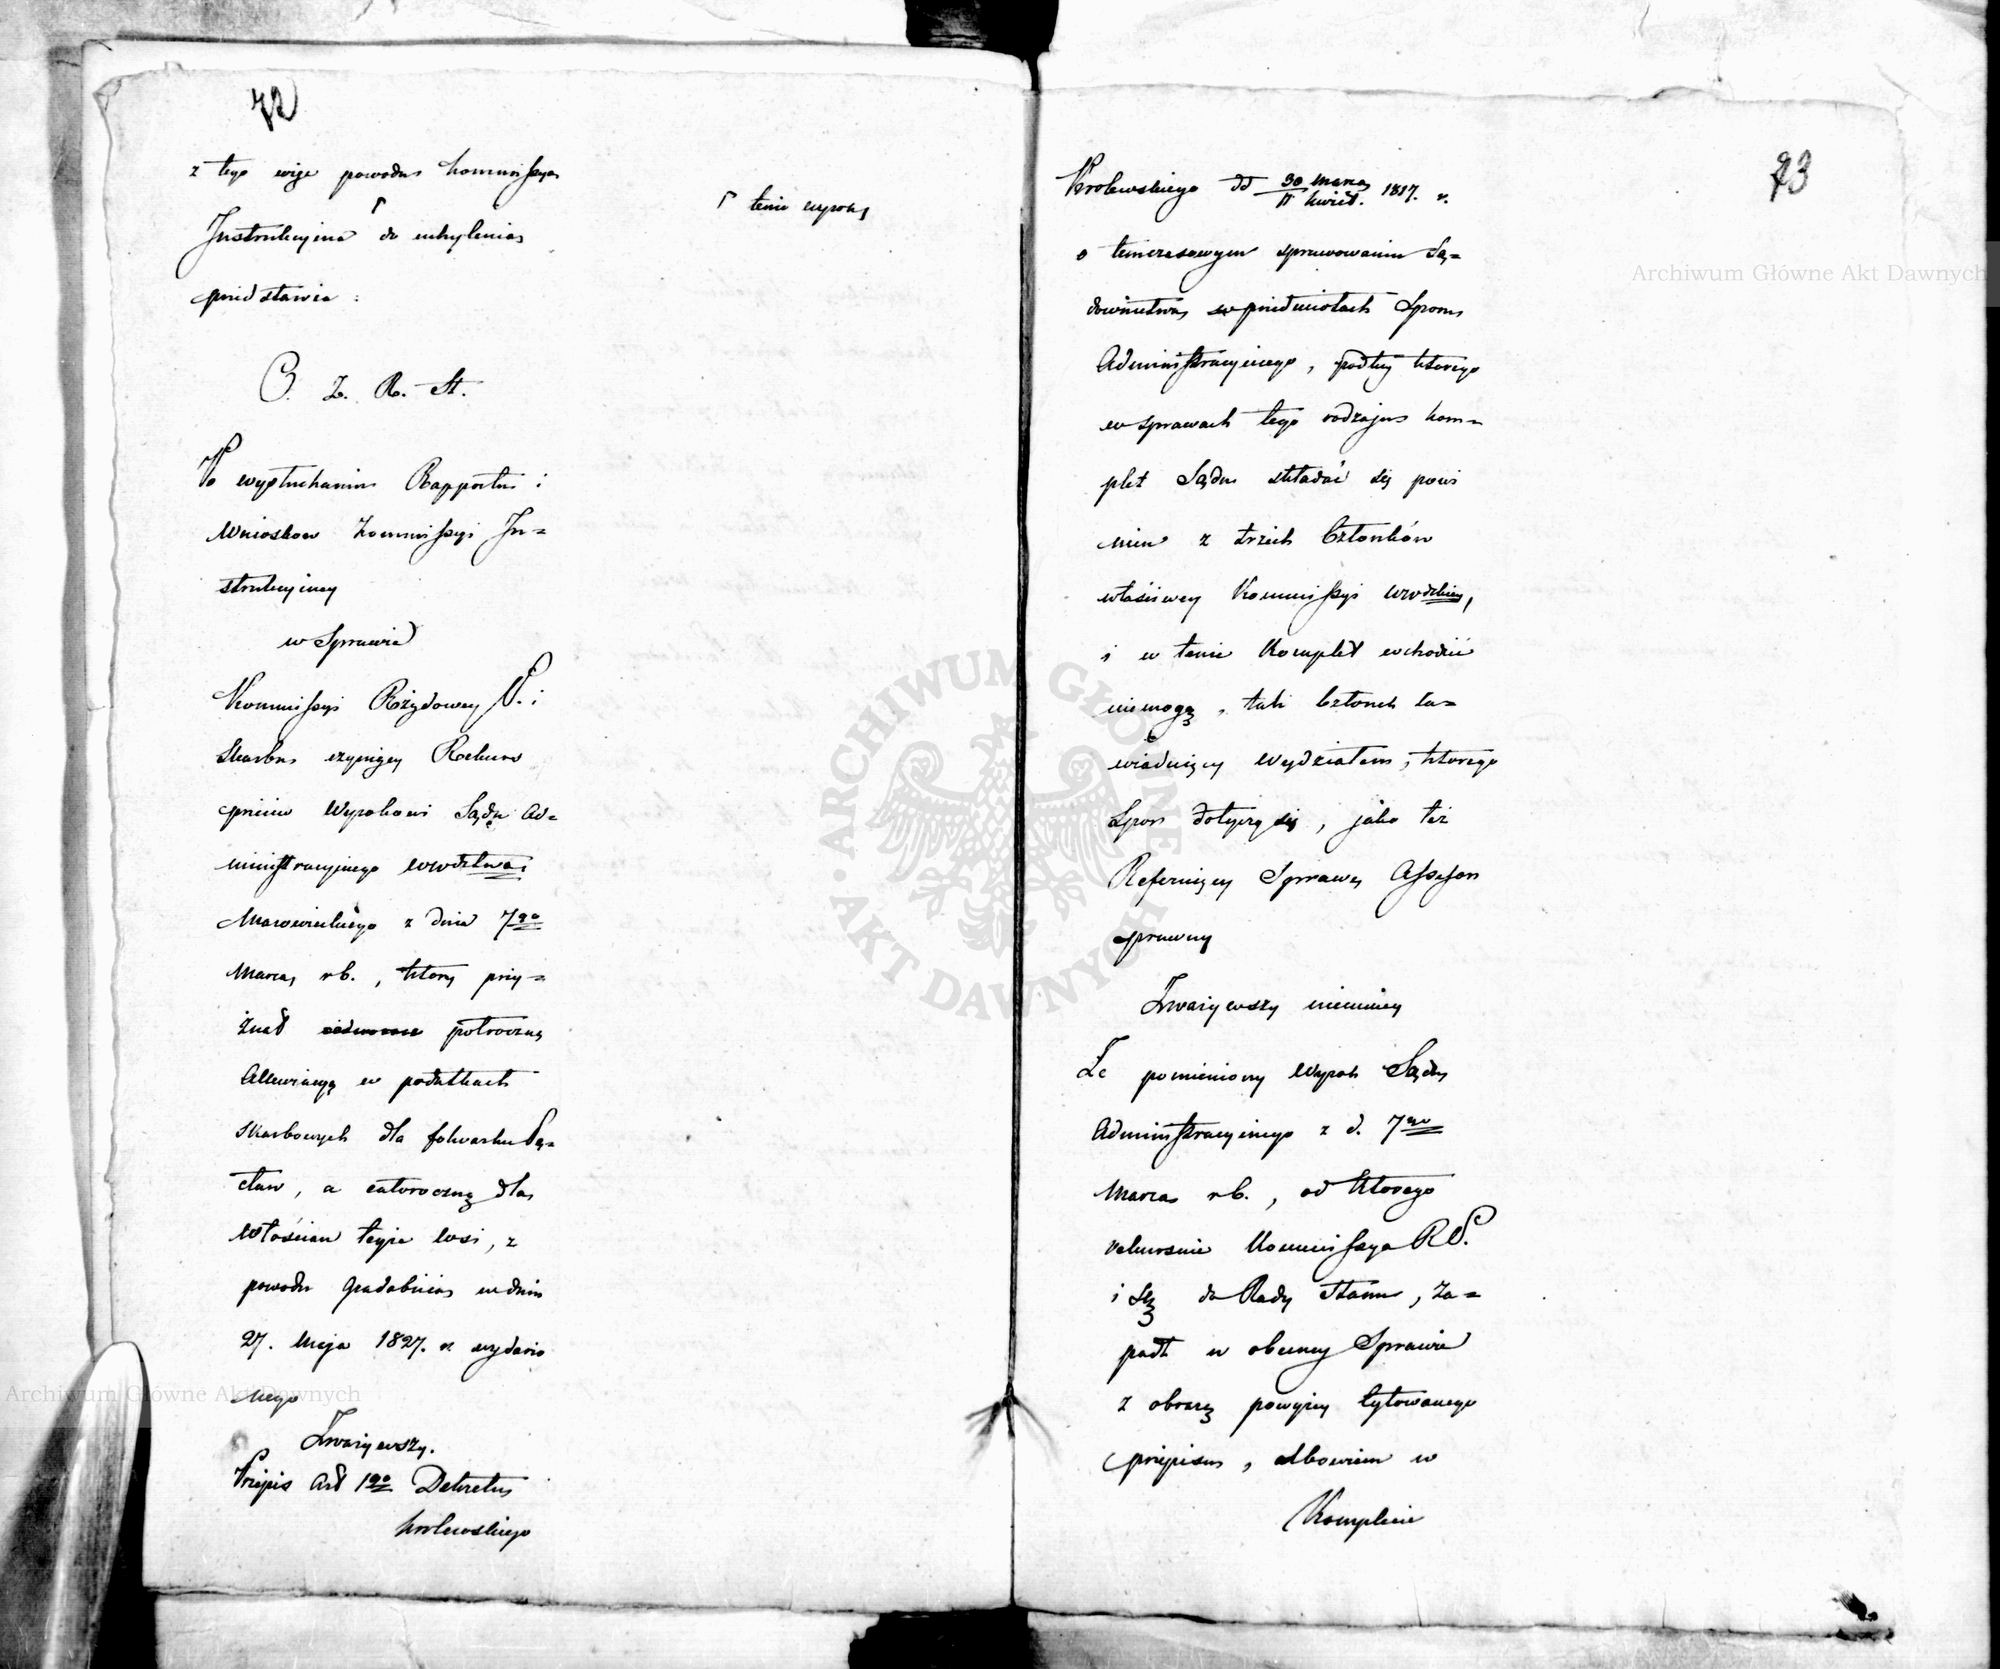 72
z tego więc powodu Kommissya
Instrukcyina ꓩ do uchylenia
przedstawia :
ꓩ tenże wyrok,
C. Z. R. St.
Po wysłuchaniu Rapportu i
Wniosków Kommissyi In=
strukcyiney
w Sprawie
Kommissyi Rządowey P. i
Skarbu czyniącey Rekurs
przeciw Wyrokowi Sądu Ad=
ministracyjnego Wwdztwa
Mazowieckiego z dnia 7go
Marca rb., który przy=
znał półroczną
Allewiacyą w podatkach
Skarbowych dla folwarku
cław, a całoroczną dla
Włościan teyże wsi, z
powodu Gradobicia w dniu
27. Maja 1827. r. wydarzo
nego
Zważywszy.
Przepis Art 1go Dekretu
Krolewskiego
73
Krolewskiego dd 30 marca / 11 Kwiet. 1817. r.
o temczasowym sprawowaniu Są=
downictwa w przedmiotach Sporu
Administracyinego, podług ktorego
w sprawach tego rodzaju kom=
plet Sądu składać się powi
nien z trzech Członków
właściwey Kommissyi Wwdzkiey,
i w tenże Komplet wchodzić
niemogą, tak Członek za=
wiaduiący Wydziałem, ktorego
Spor dotyczy się, jako też
Referuiący Sprawę Assessor
prawny
Zważywszy niemniey
Że pomieniony Wyrok Sądu
Administracyinego z d. 7go
Marca rb., od ktorego
rekursuie Kommissya R P.
i Sk do Rady Stanu, za=
padł w obecney Sprawie
z obrazą powyżey cytowanego
przepisu, albowiem w
Komplecie
Archiwum Główne Akt Dawnych
Archiwum Główne Akt Dawnych
ARCHIWUM GŁÓWNE · AKT DAWNYCH ·